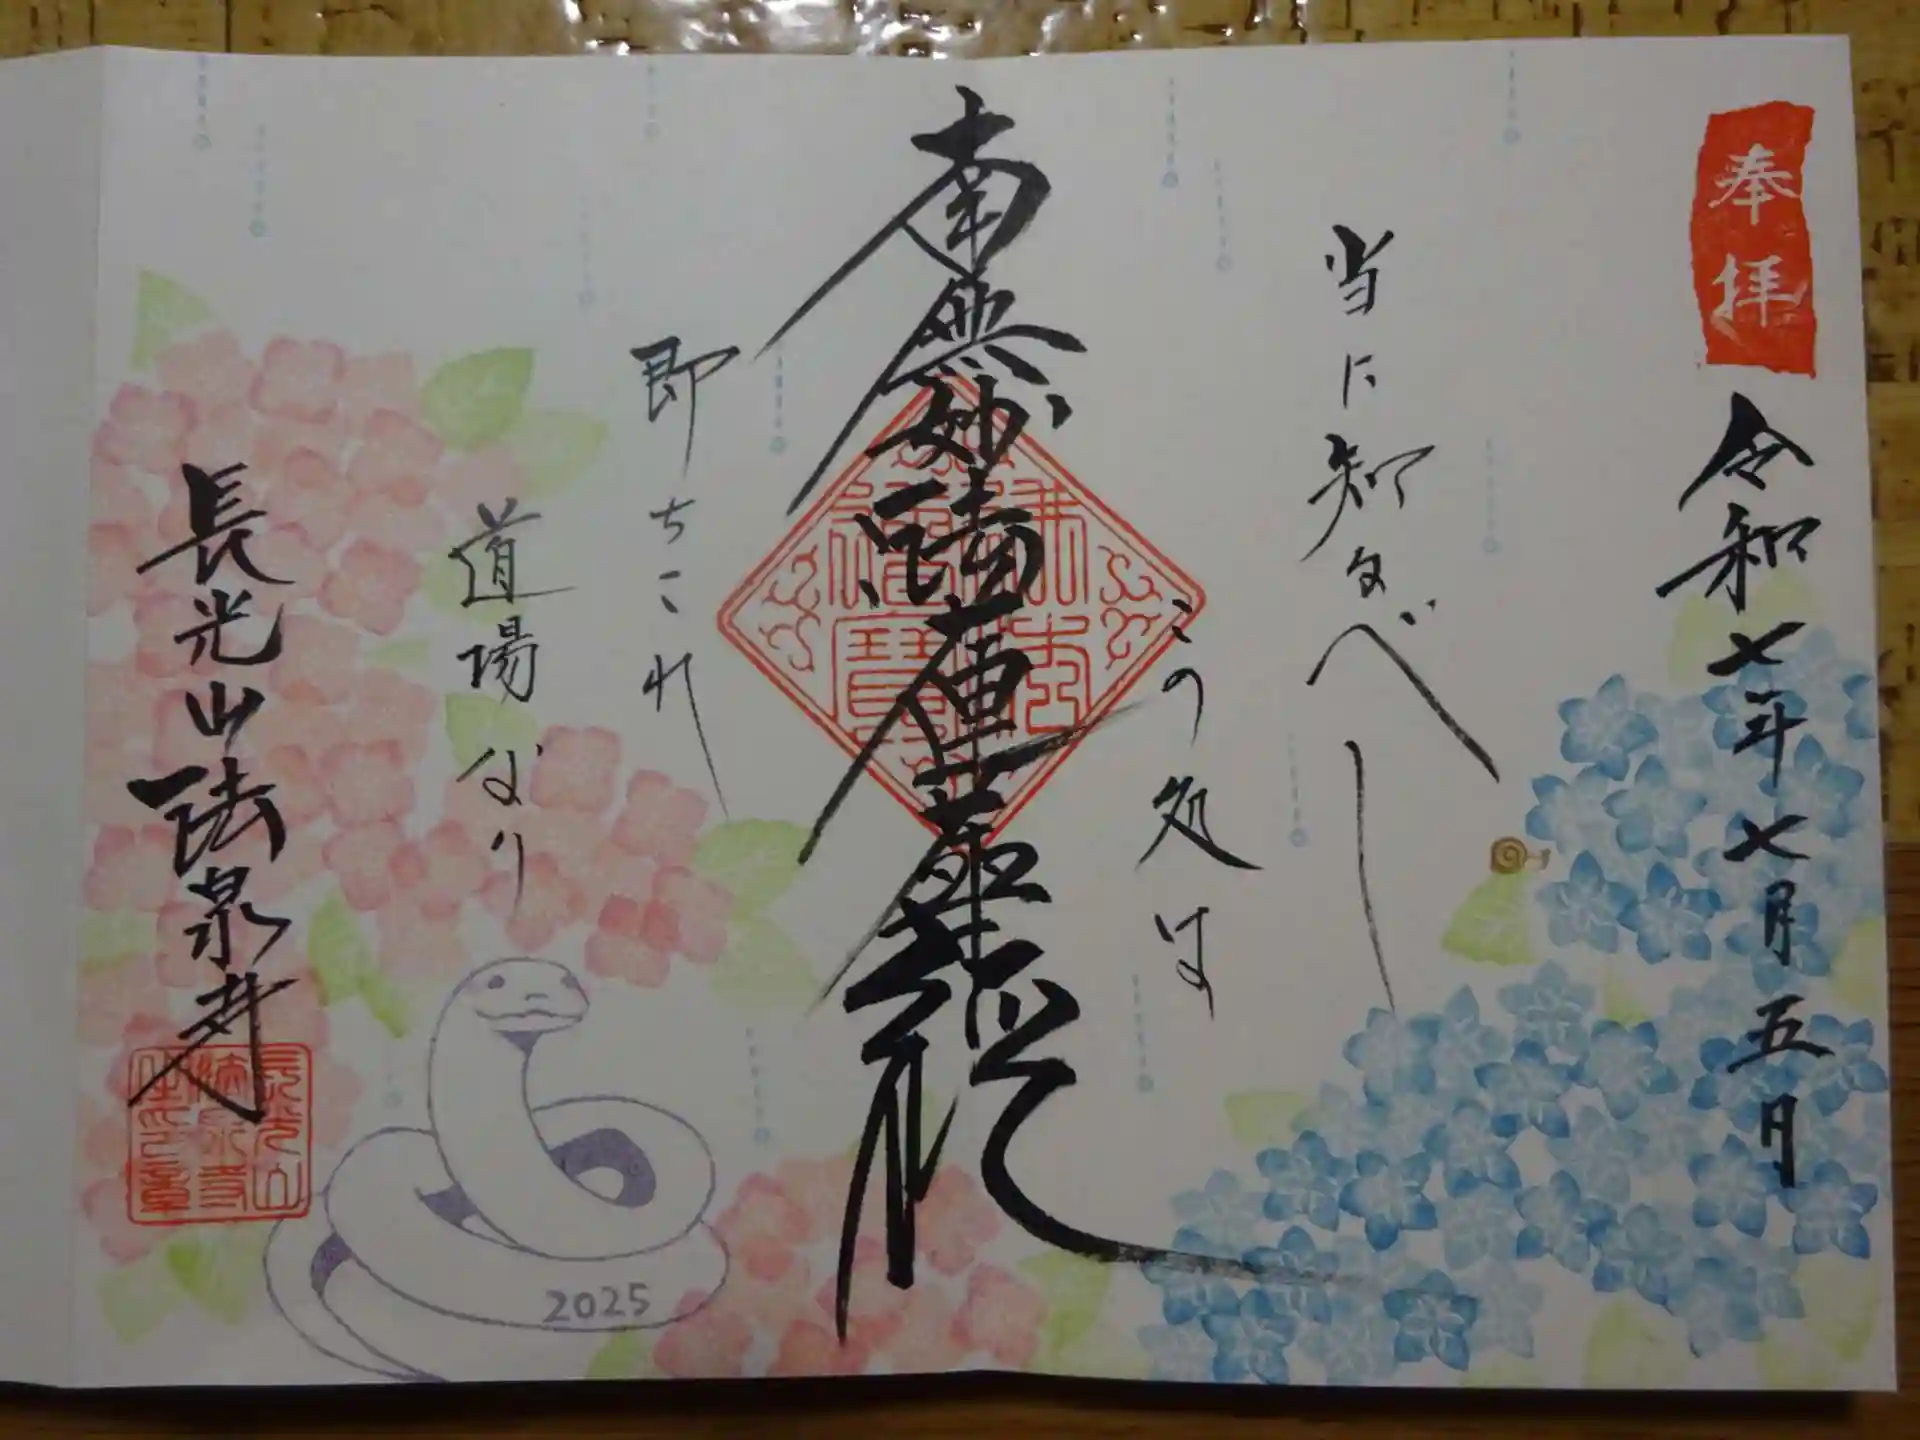 奉拝
令和七年七月五日
当に知るべし
この処は
南無妙法蓮華経
即ちこれ
道場なり
長光山法泉寺
2025